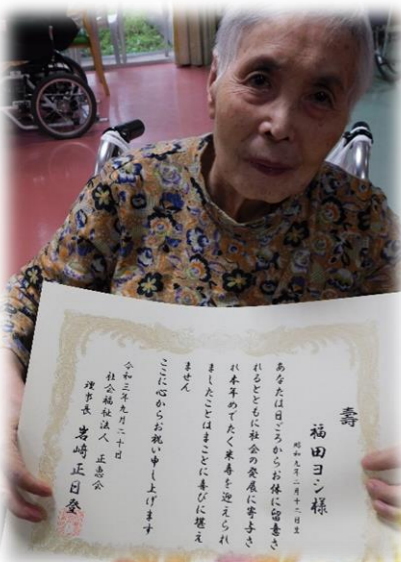 壽
福田ヨシ様
昭和九年二月十二日生
あなたは日ごろからお体に留意さ
れるとともに社会の発展に寄与さ
れ本年めでたく米寿を迎えられ
ましたことはまことに喜びに堪え
ません
ここに心からお祝い申し上げます
令和三年九月二十日
社会福祉法人 正恵会
理事長 岩崎正日登